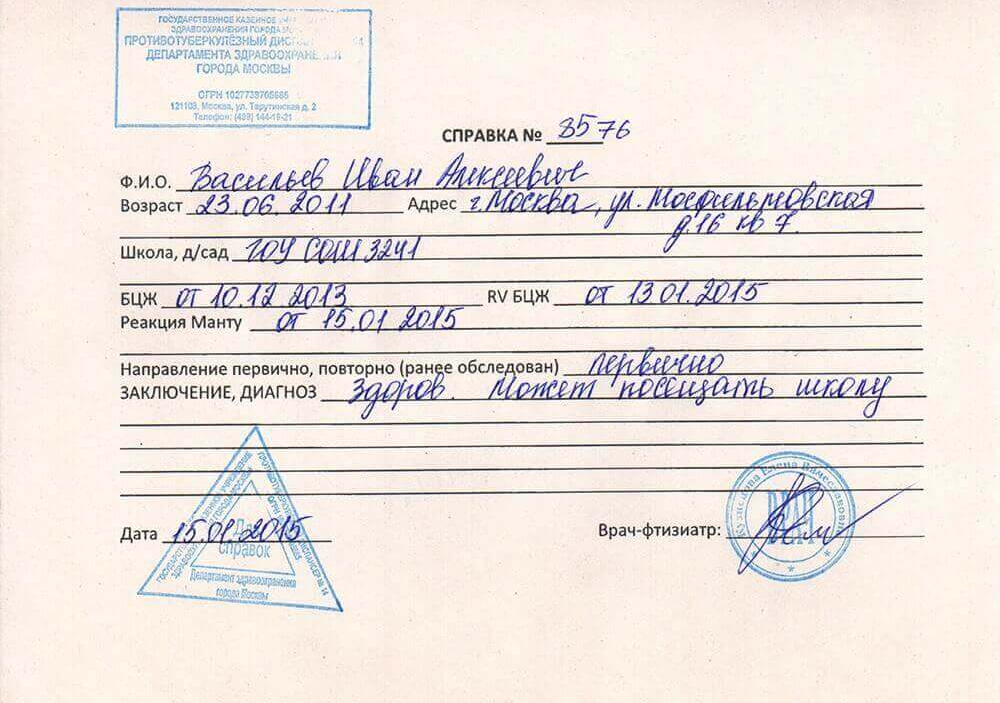 ГОСУДАРСТВЕННОЕ КАЗЕННОЕ
ЗДРАВООХРАНЕНИЯ ГОРОДА
ПРОТИВОТУБЕРКУЛЁЗНЫЙ
ДЕПАРТАМЕНТА ЗДРАВООХРАНЕНИЯ
ГОРОДА МОСКВЫ
ОГРН 1027739705685
121108, Москва, ул. Тарутинская д. 2
Телефон: (499) 144-19-21
СПРАВКА № 8576
Ф.И.О. Васильев Иван Алексеевич
Возраст 23.06.2011 Адрес г. Москва, ул. Мосфильмовская
д.16 кв 7.
Школа, д/сад ГОУ СОШ 3241
БЦЖ от 10.12 2013 RV БЦЖ от 13 01.2015
Реакция Манту от 15.01 2015
Направление первично, повторно (ранее обследован) первично
ЗАКЛЮЧЕНИЕ, ДИАГНОЗ Здоров. Может посещать школу
Дата 15.01.2015 Врач-фтизиатр:
Для
справок
Департамент здравоохранения
города Москвы
Елена Вячеславовна
ВРАЧ